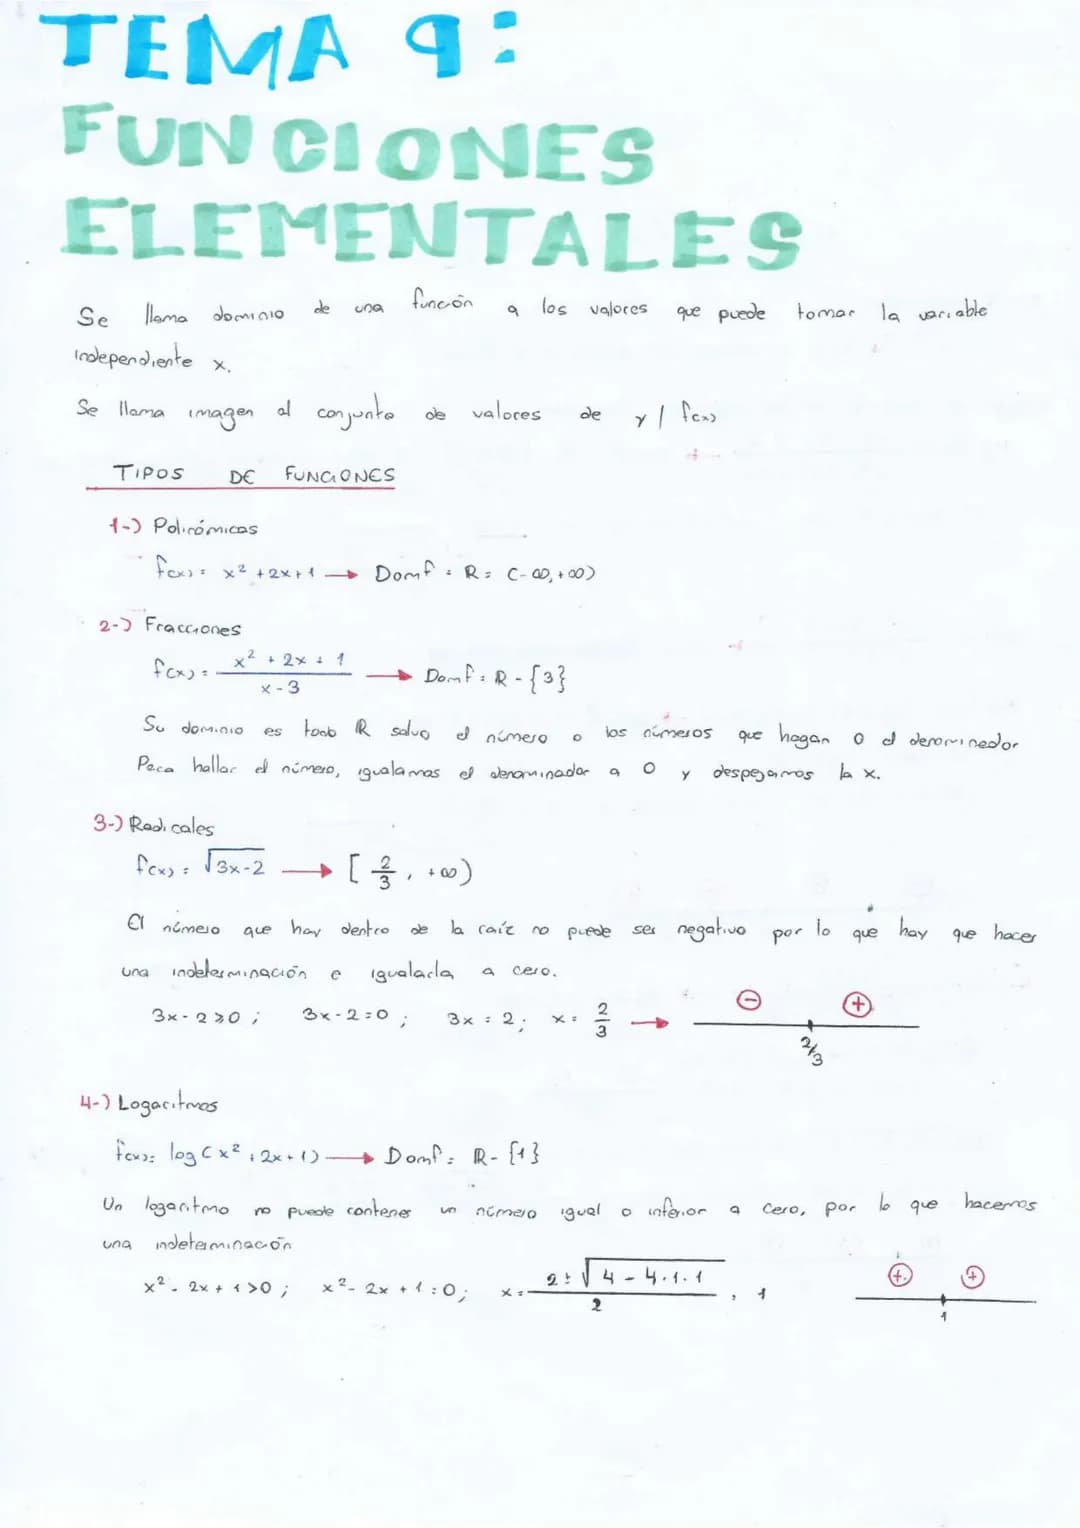 TEMA 9:
FUNCIONES
ELEMENTALES
Se llama dominio de una función a los valores que puede tomar la variable
independiente x.
Se llama imagen al conjunto de valores de y / f(x)
TIPOS DE FUNCIONES
1-) Polinómicas
f(x) = x² + 2x + 1 → Domf = R = (-∞, +∞)
2-) Fracciones
f(x) = (x² + 2x + 1) / (x - 3) → Domf = R - {3}
Su dominio es todo R salvo el número o los números que hagan 0 el denominador
Para hallar el número, igualamos el denominador a 0 y despejamos la x.
3-) Radicales
f(x) = √3x-2 → [2/3, +∞)
El número que hay dentro de la raíz no puede ser negativo por lo que hay que hacer
una indeterminación e igualarla a cero.
3x - 2 ≥ 0 ; 3x - 2 = 0 ; 3x = 2 ; x = 2/3 → ⊖ ⊕ 2/3
4-) Logaritmos
f(x) = log (x² + 2x + 1) → Domf = R - {1}
Un logaritmo no puede contener un número igual o inferior a cero, por lo que hacemos
una indeterminación
x² - 2x + 1 > 0 ; x² - 2x + 1 = 0 ; x = (2 ± √4 - 4·1·1) / 2 = 1 ⊕ ⊕ 1